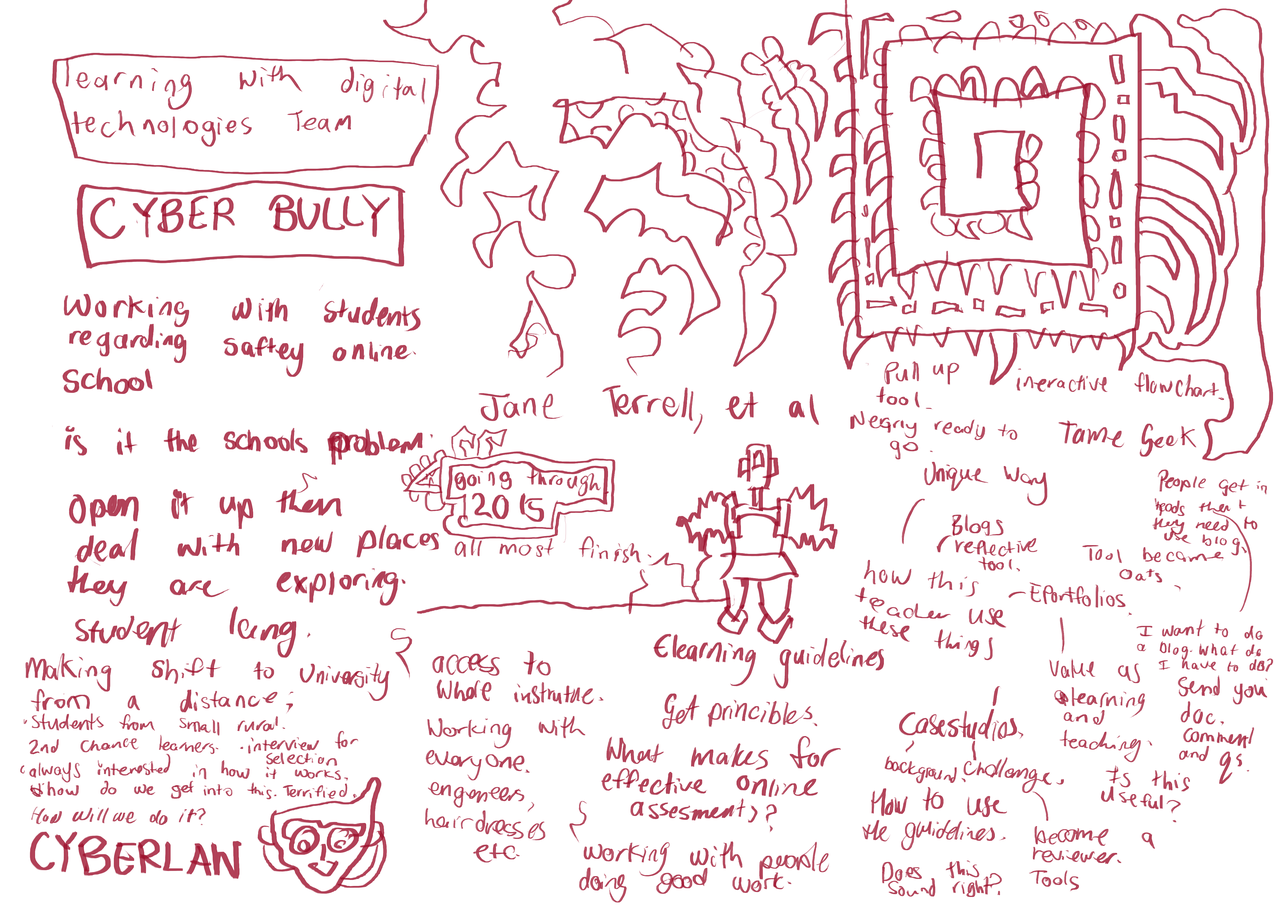 learning with digital
technologies Team
CYBER BULLY
Working with students
regarding saftey online.
School
is it the schools problem.
open it up then
deal with new places
they are exploring.
student
Making shift to University
from a distance;
Students from small rural.
2nd chance learners. interview for
selection
always interested in how it works.
how do we get into this. Terrified.
How will we do it?
CYBERLAN
Jane Terrell, et al
going through
2015
all most finish.
access to
whole
Working with
everyone.
engeneers,
hairdresses
etc.
Elearning guidelines
Get princibles.
What makes for
effective online
assesment,?
Working with people
doing good work.
Pull up
tool.
ready to
go.
ineractive flowchart.
Tame Geek
Unique way
Blogs
reflective
tool.
how this
teacher use
these things
Eportfolios.
People get in
heads that
they need to
use blog.
Tool became
oats.
I want to do
a blog. what do
I have to do?
Send you
doc.
comment
and qs.
Value as
learning
and
teaching.
Is this
useful?
Casestudios,
background. challenge,
How to use
the guidelines.
Does this
sound right?
become a
reviewer.
Tools